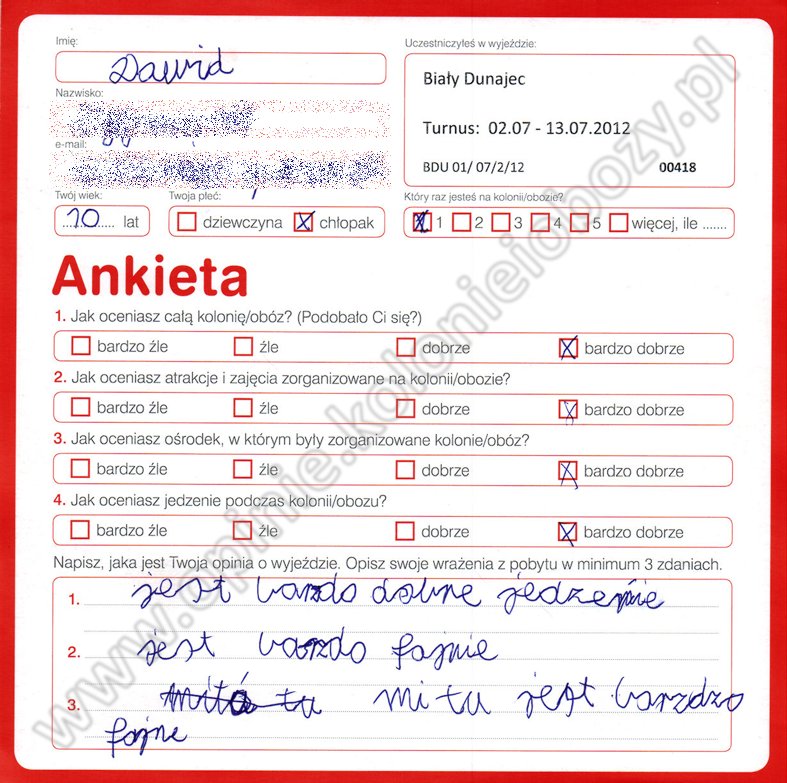 Imię:
Dawid
Uczestniczyłeś w wyjeździe:
Biały Dunajec
Turnus: 02.07 - 13.07.2012
BDU 01/ 07/2/12 00418
Nazwisko:
e-mail:
Twój wiek:
10 lat
Twoja płeć:
dziewczyna chłopak
Który raz jesteś na kolonii/obozie?
1 2 3 4 5 więcej, ile .......
Ankieta
1. Jak oceniasz całą kolonię/obóz? (Podobało Ci się?)
bardzo źle źle dobrze bardzo dobrze
2. Jak oceniasz atrakcje i zajęcia zorganizowane na kolonii/obozie?
bardzo źle źle dobrze bardzo dobrze
3. Jak oceniasz ośrodek, w którym były zorganizowane kolonie/obóz?
bardzo źle źle dobrze bardzo dobrze
4. Jak oceniasz jedzenie podczas kolonii/obozu?
bardzo źle źle dobrze bardzo dobrze
Napisz, jaka jest Twoja opinia o wyjeździe. Opisz swoje wrażenia z pobytu w minimum 3 zdaniach.
1. jest bardzo dobre jedzenie
2. jest bardzo fajnie
3. mi tu jest barzdzo
fajne
www.opinie.kolonieiobozy.pl